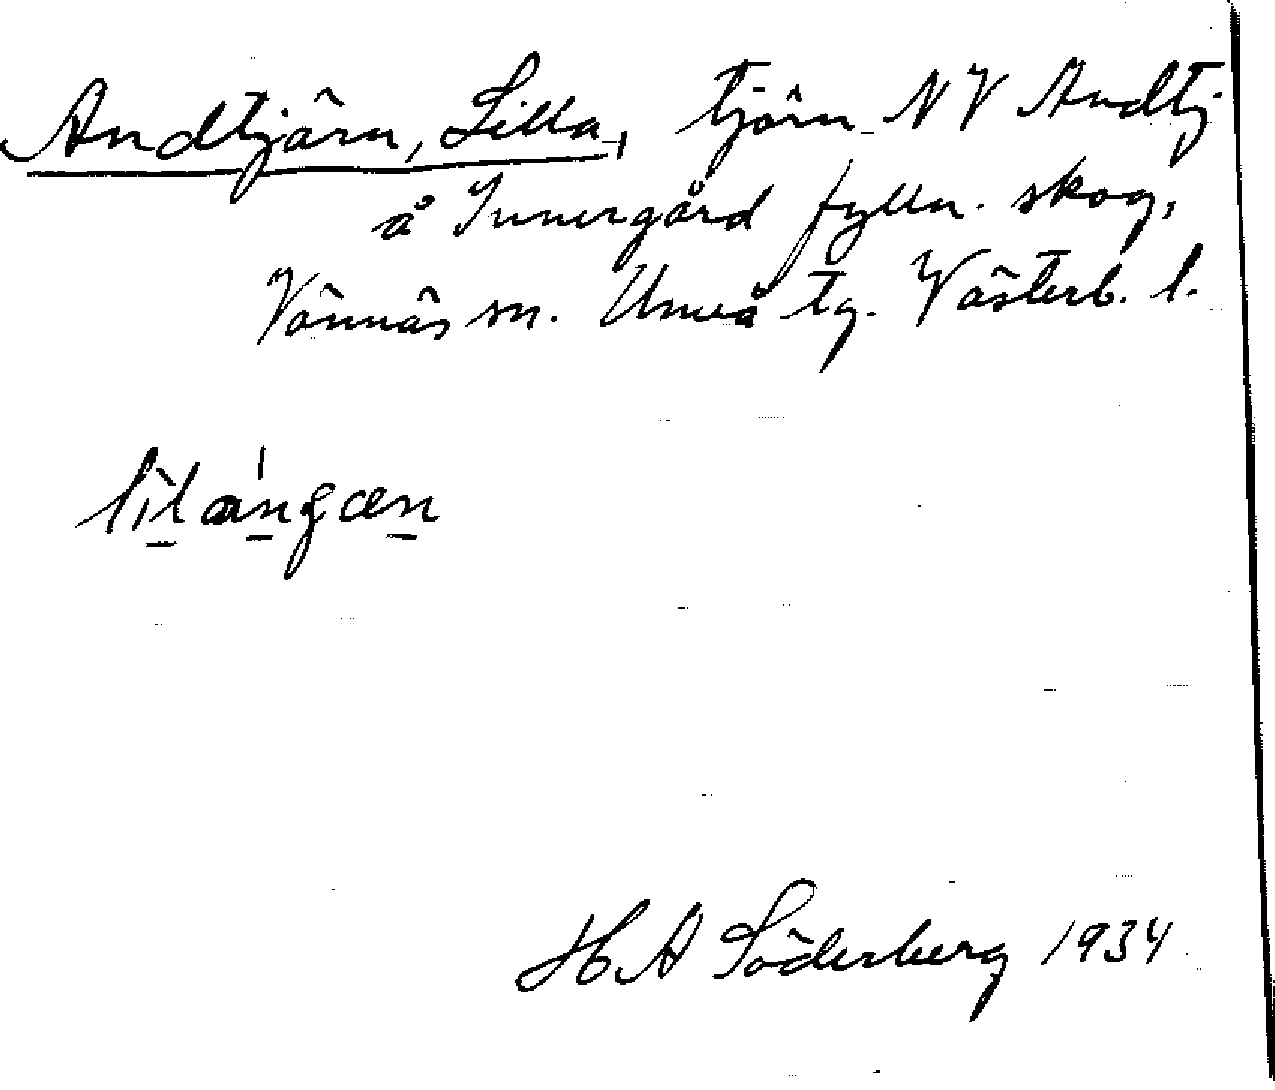 Andtjärn, Lilla, tjärn NV Andtj.
å Innergård fylln. skog,
Vännäs sn. Umeå tg. Västerb. l.
H A Söderberg 1934